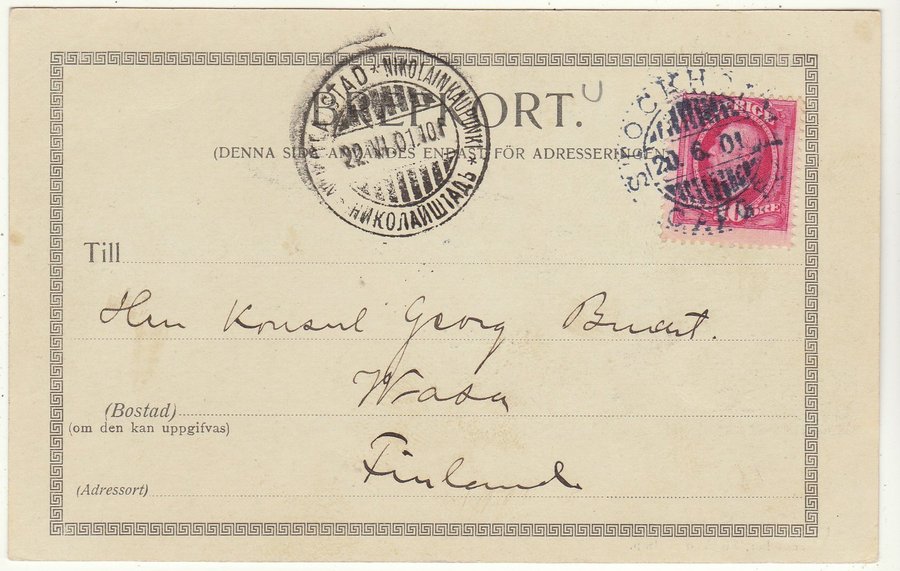 BREFKORT.
U
(DENNA SIDA ANVÄNDES ENDAST FÖR ADRESSERINGEN
NIKOLAISTAD * NIKOLAINKAUPUNKI *
22.VI.01
НИКОЛАЙШТАДЪ
STOCKHOLM
20. 6. 01
SVERIGE
10 ÖRE
Till
Herr Konsul Georg
Wasa
(Bostad)
(om den kan uppgifvas)
Finland
(Adressort)